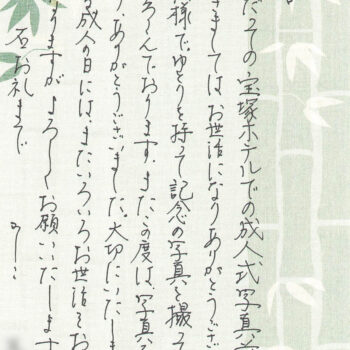 だっての宝塚ホテルでの成人式写真
きましてはお世話になりありがとうござ
様でゆとりを持って記念の写真を撮って
ろこんでおります。またこの度は、写真
り、ありがとうございました。大切にいたしま
る成人の日には、またいろいろお世話をお
ますがよろしくお願いいたします
右お礼まで かしこ